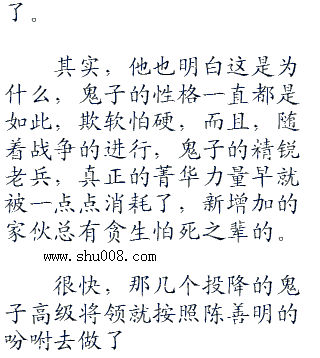 了。
其实，他也明白这是为
什么，鬼子的性格一直都是
如此，欺软怕硬，而且，随
着战争的进行，鬼子的精锐
老兵，真正的菁华力量早就
被一点点消耗了，新增加的
家伙总有贪生怕死之辈的。
www.shu008.com
很快，那几个投降的鬼
子高级将领就按照陈善明的
吩咐去做了